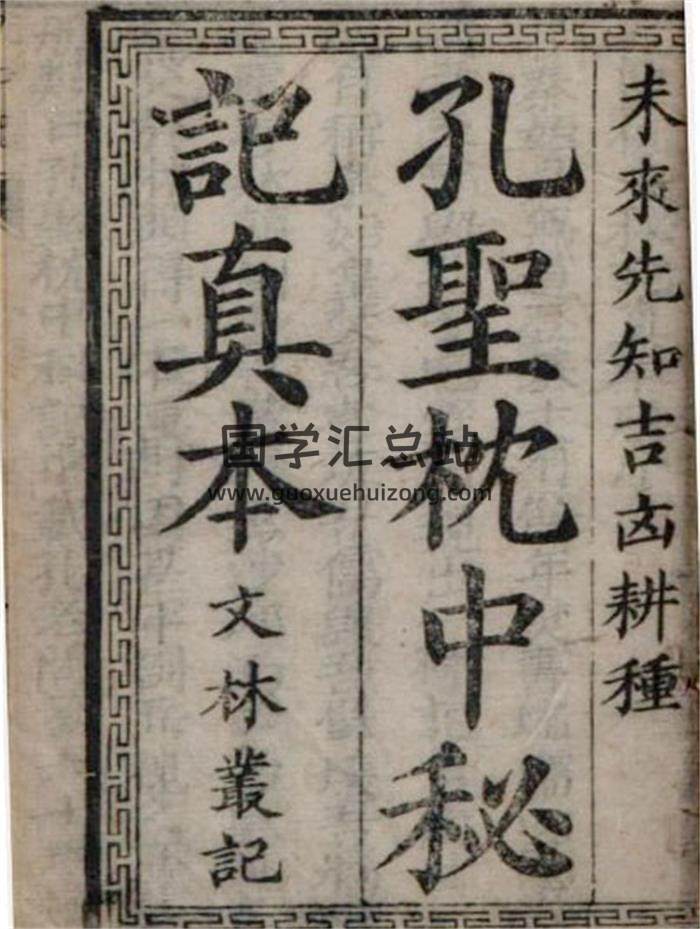 未來先知吉凶耕種
孔聖枕中秘
記真本
文林叢記
国学汇总站
www.guoxuehuizong.com